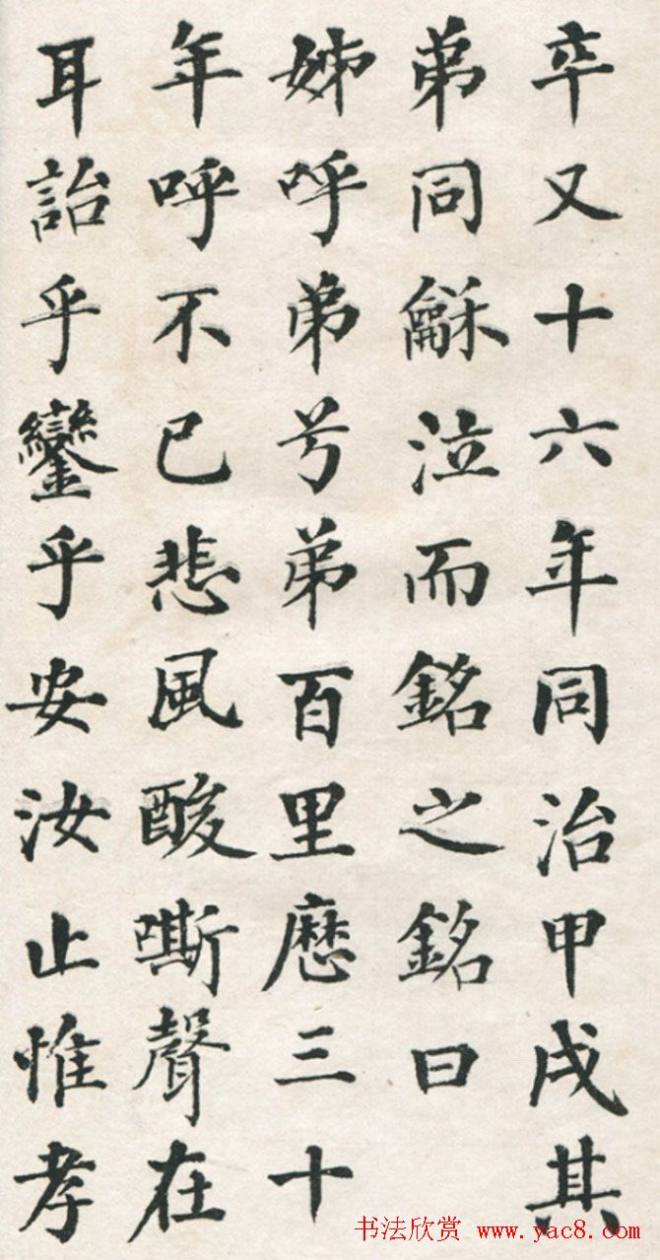 卒又十六年同治甲戌其
弟同龢泣而銘之銘曰
姊呼弟兮弟百里歷三十
年呼不已悲風酸嘶聲在
耳詒乎鑾乎安汝止惟孝
书法欣赏 www.yac8.com